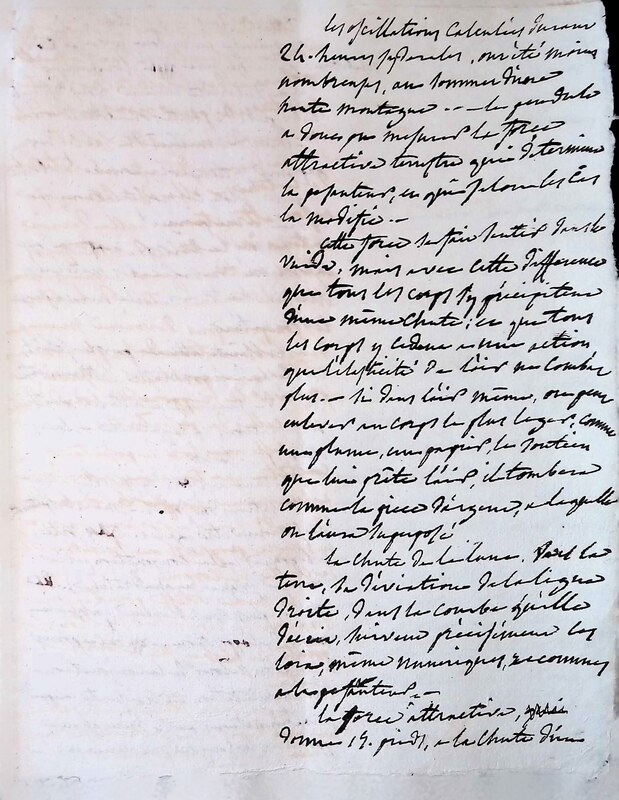 les oscillations calculées durant
24. heures syderales, ont été moins
nombreuses, au sommet d'une
haute montagne -- le pendule
a donc pu mesurer la force
attractive terrestre qui détermine
la pesanteur, en qui selon les cas
la modifie --
cette force se fait sentir dans le
vuide, mais avec cette difference
que tous les corps s'y précipitent
d'une même chute; ce que tous
les corps y cedent a une action
que l'élasticité de l'air ne combat
plus. - si dans l'air même, on peut
enlever un corps le plus leger, comme
une plume, un papier, le soutien
que lui prête l'air, il tombera
comme la piece d'argent, a laquelle
on l'aura superposé
la chute de la lune, vers la
terre, sa déviation de la ligne
droite, dans la courbe qu'elle
décrit, suivent précisément les
loix, même numeriques, reconnues
a la pesanteur. -
la force attractive,
donne 15. pieds, a la chute d'un